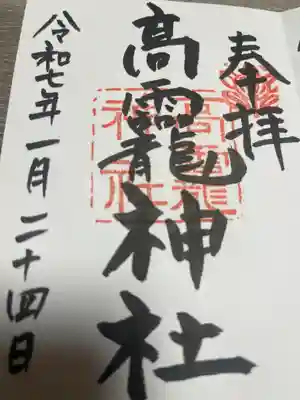 奉拝
高龗神社
令和七年一月二十四日